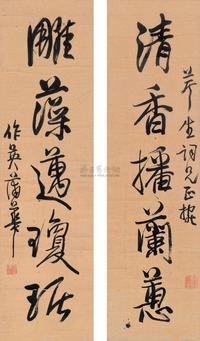 清香播蘭蕙
芹生詞兄正按
雕藻邁瓊琚
作英蒲華